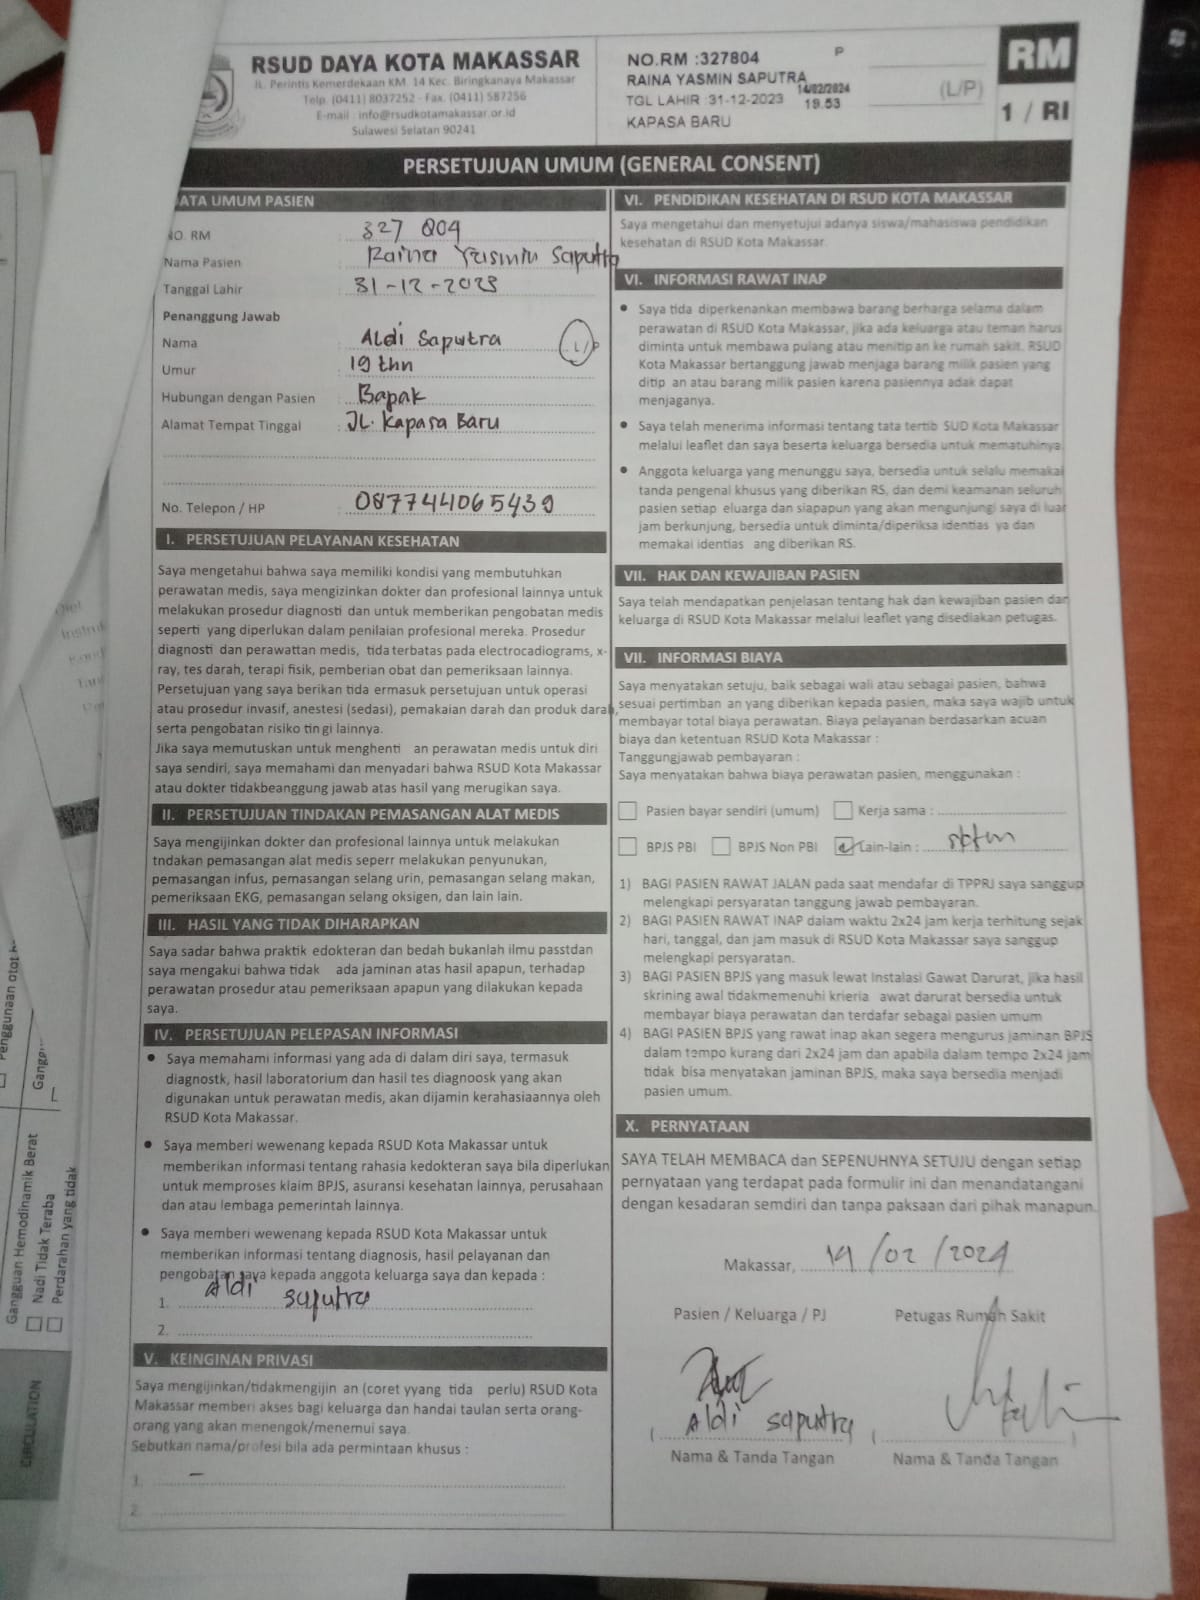 RSUD DAYA KOTA MAKASSAR
JL. Perintis Kemerdekaan KM. 14 Kec. Biringkanaya Makassar
Telp. (0411) 8037252 - Fax. (0411) 587256
E-mail : info@rsudkotamakassar.or.id
Sulawesi Selatan 90241
NO.RM :327804 P
RAINA YASMIN SAPUTRA
14/02/2024
TGL LAHIR :31-12-2023 19.53
KAPASA BARU
(L/P)
RM
1 / RI
PERSETUJUAN UMUM (GENERAL CONSENT)
DATA UMUM PASIEN
NO. RM : 327 804
Nama Pasien : Raina Yasmin Saputra
Tanggal Lahir : 31-12-2023
Penanggung Jawab
Nama : Aldi Saputra L/P
Umur : 19 thn
Hubungan dengan Pasien : Bapak
Alamat Tempat Tinggal : JL. Kapasa Baru
No. Telepon / HP : 087744065439
I. PERSETUJUAN PELAYANAN KESEHATAN
Saya mengetahui bahwa saya memiliki kondisi yang membutuhkan
perawatan medis, saya mengizinkan dokter dan profesional lainnya untuk
melakukan prosedur diagnosti dan untuk memberikan pengobatan medis
seperti yang diperlukan dalam penilaian profesional mereka. Prosedur
diagnosti dan perawattan medis, tida terbatas pada electrocadiograms, x-
ray, tes darah, terapi fisik, pemberian obat dan pemeriksaan lainnya.
Persetujuan yang saya berikan tida ermasuk persetujuan untuk operasi
atau prosedur invasif, anestesi (sedasi), pemakaian darah dan produk darah,
serta pengobatan risiko tin gi lainnya.
Jika saya memutuskan untuk menghenti an perawatan medis untuk diri
saya sendiri, saya memahami dan menyadari bahwa RSUD Kota Makassar
atau dokter tidakbeanggung jawab atas hasil yang merugikan saya.
II. PERSETUJUAN TINDAKAN PEMASANGAN ALAT MEDIS
Saya mengijinkan dokter dan profesional lainnya untuk melakukan
tndakan pemasangan alat medis seperr melakukan penyunukan,
pemasangan infus, pemasangan selang urin, pemasangan selang makan,
pemeriksaan EKG, pemasangan selang oksigen, dan lain lain.
III. HASIL YANG TIDAK DIHARAPKAN
Saya sadar bahwa praktik edokteran dan bedah bukanlah ilmu passtdan
saya mengakui bahwa tidak ada jaminan atas hasil apapun, terhadap
perawatan prosedur atau pemeriksaan apapun yang dilakukan kepada
saya.
IV. PERSETUJUAN PELEPASAN INFORMASI
• Saya memahami informasi yang ada di dalam diri saya, termasuk
diagnostk, hasil laboratorium dan hasil tes diagnoosk yang akan
digunakan untuk perawatan medis, akan dijamin kerahasiaannya oleh
RSUD Kota Makassar.
• Saya memberi wewenang kepada RSUD Kota Makassar untuk
memberikan informasi tentang rahasia kedokteran saya bila diperlukan
untuk memproses klaim BPJS, asuransi kesehatan lainnya, perusahaan
dan atau lembaga pemerintah lainnya.
• Saya memberi wewenang kepada RSUD Kota Makassar untuk
memberikan informasi tentang diagnosis, hasil pelayanan dan
pengobatan saya kepada anggota keluarga saya dan kepada :
1. Aldi saputra
2.
V. KEINGINAN PRIVASI
Saya mengijinkan/tidakmengijin an (coret yyang tida perlu) RSUD Kota
Makassar memberi akses bagi keluarga dan handai taulan serta orang-
orang yang akan menengok/menemui saya.
Sebutkan nama/profesi bila ada permintaan khusus :
1. –
2.
VI. PENDIDIKAN KESEHATAN DI RSUD KOTA MAKASSAR
Saya mengetahui dan menyetujui adanya siswa/mahasiswa pendidikan
kesehatan di RSUD Kota Makassar.
VI. INFORMASI RAWAT INAP
• Saya tida diperkenankan membawa barang berharga selama dalam
perawatan di RSUD Kota Makassar, jika ada keluarga atau teman harus
diminta untuk membawa pulang atau menitip an ke rumah sakit. RSUD
Kota Makassar bertanggung jawab menjaga barang milik pasien yang
ditip an atau barang milik pasien karena pasiennya adak dapat
menjaganya.
• Saya telah menerima informasi tentang tata tertib SUD Kota Makassar
melalui leaflet dan saya beserta keluarga bersedia untuk mematuhinya.
• Anggota keluarga yang menunggu saya, bersedia untuk selalu memakai
tanda pengenal khusus yang diberikan RS, dan demi keamanan seluruh
pasien setiap eluarga dan siapapun yang akan mengunjungi saya di luar
jam berkunjung, bersedia untuk diminta/diperiksa identias ya dan
memakai identias ang diberikan RS.
VII. HAK DAN KEWAJIBAN PASIEN
Saya telah mendapatkan penjelasan tentang hak dan kewajiban pasien dan
keluarga di RSUD Kota Makassar melalui leaflet yang disediakan petugas.
VII. INFORMASI BIAYA
Saya menyatakan setuju, baik sebagai wali atau sebagai pasien, bahwa
sesuai pertimban an yang diberikan kepada pasien, maka saya wajib untuk
membayar total biaya perawatan. Biaya pelayanan berdasarkan acuan
biaya dan ketentuan RSUD Kota Makassar :
Tanggungjawab pembayaran :
Saya menyatakan bahwa biaya perawatan pasien, menggunakan :
Pasien bayar sendiri (umum) Kerja sama :
BPJS PBI BPJS Non PBI Lain-lain :
1) BAGI PASIEN RAWAT JALAN pada saat mendafar di TPPRJ saya sanggup
melengkapi persyaratan tanggung jawab pembayaran.
2) BAGI PASIEN RAWAT INAP dalam waktu 2x24 jam kerja terhitung sejak
hari, tanggal, dan jam masuk di RSUD Kota Makassar saya sanggup
melengkapi persyaratan.
3) BAGI PASIEN BPJS yang masuk lewat Instalasi Gawat Darurat, jika hasil
skrining awal tidakmemenuhi krieria awat darurat bersedia untuk
membayar biaya perawatan dan terdafar sebagai pasien umum
4) BAGI PASIEN BPJS yang rawat inap akan segera mengurus jaminan BPJS
dalam tempo kurang dari 2x24 jam dan apabila dalam tempo 2x24 jam
tidak bisa menyatakan jaminan BPJS, maka saya bersedia menjadi
pasien umum.
X. PERNYATAAN
SAYA TELAH MEMBACA dan SEPENUHNYA SETUJU dengan setiap
pernyataan yang terdapat pada formulir ini dan menandatangani
dengan kesadaran semdiri dan tanpa paksaan dari pihak manapun.
Makassar, 14/02/2024
Pasien / Keluarga / PJ Petugas Rumah Sakit
Aldi saputra
Nama & Tanda Tangan Nama & Tanda Tangan
Penggunaan Otot
Gangguan Hemodinamik Berat
Nadi Tidak Teraba
Perdarahan yang tidak
CIRCULATION